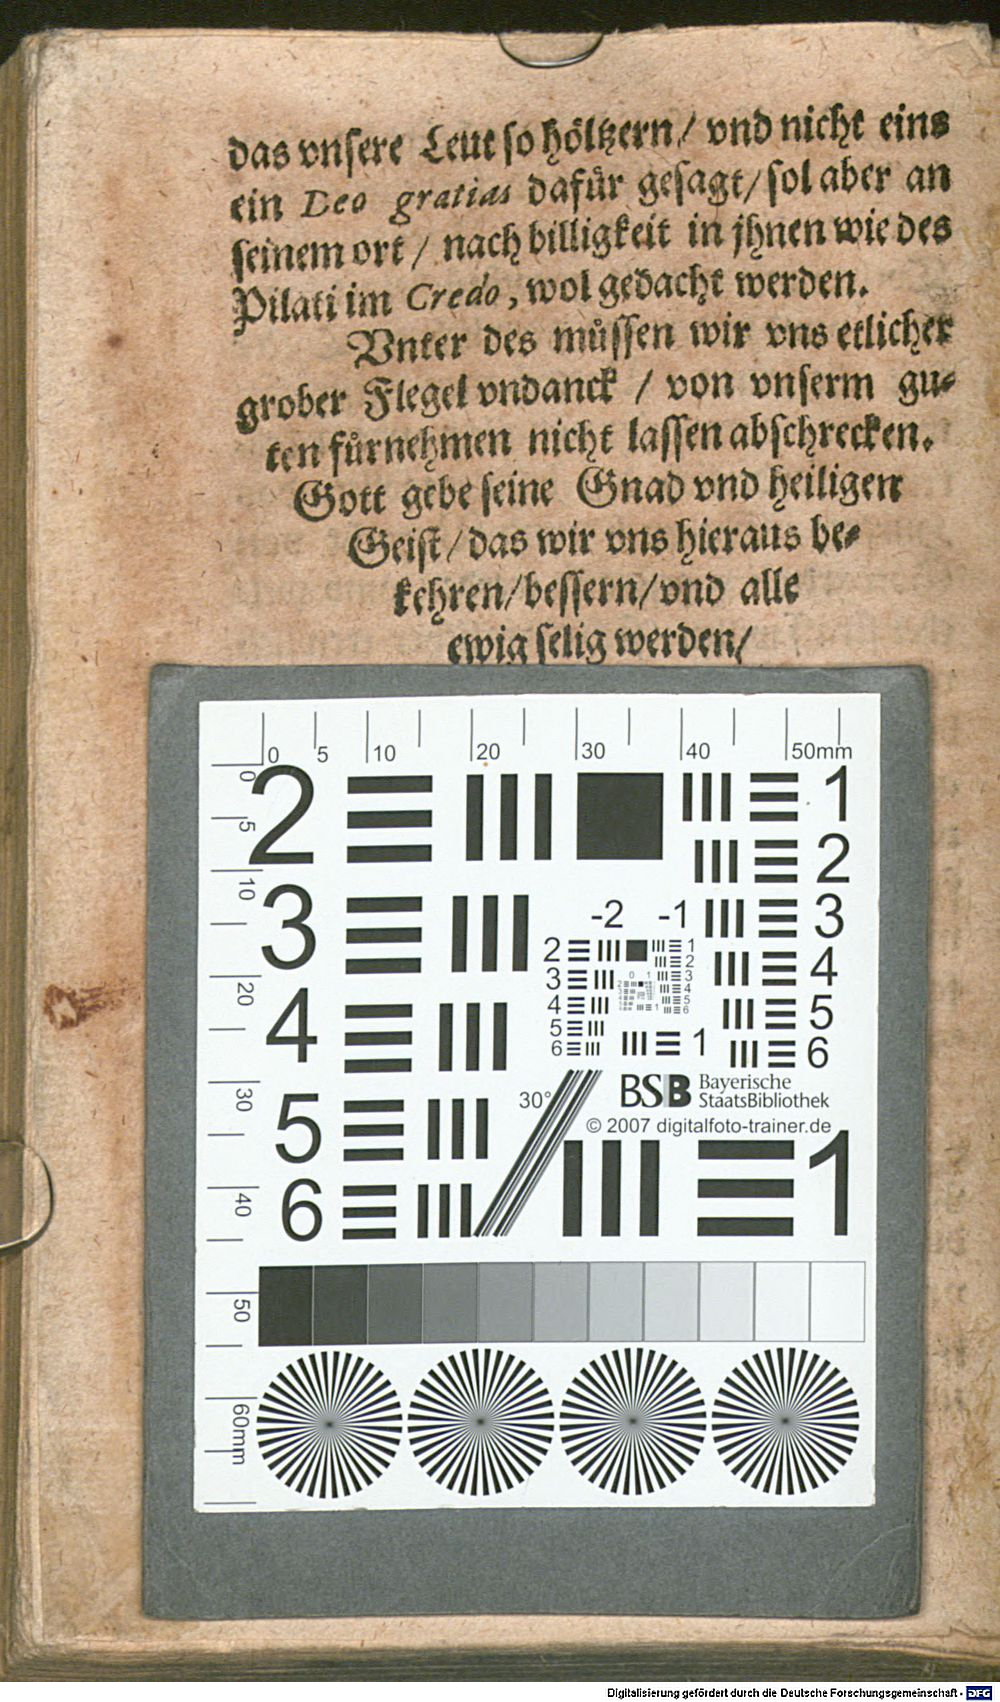 das vnsere Leut so höltzern / vnd nicht eins
ein Deo gratias dafür gesagt / sol aber an
seinem ort / nach billigkeit in jhnen wie des
Pilati im Credo, wol gedacht werden.
Vnter des müssen wir vns etlicher
grober Flegel vndanck / von vnserm gu-
ten fürnehmen nicht lassen abschrecken.
Gott gebe seine Gnad vnd heiligen
Geist / das wir vns hieraus be-
kehren / bessern / vnd alle
ewig selig werden /
0 5 10 20 30 40 50mm
0 5 10 20 30 40 50 60mm
2
3
4
5
6
1
2
3
4
5
6
-2 -1
2 1
3 2
4 3
5 4
6 5
6
1
30°
BSB Bayerische
StaatsBibliothek
© 2007 digitalfoto-trainer.de
1
Digitalisierung gefördert durch die Deutsche Forschungsgemeinschaft - DFG